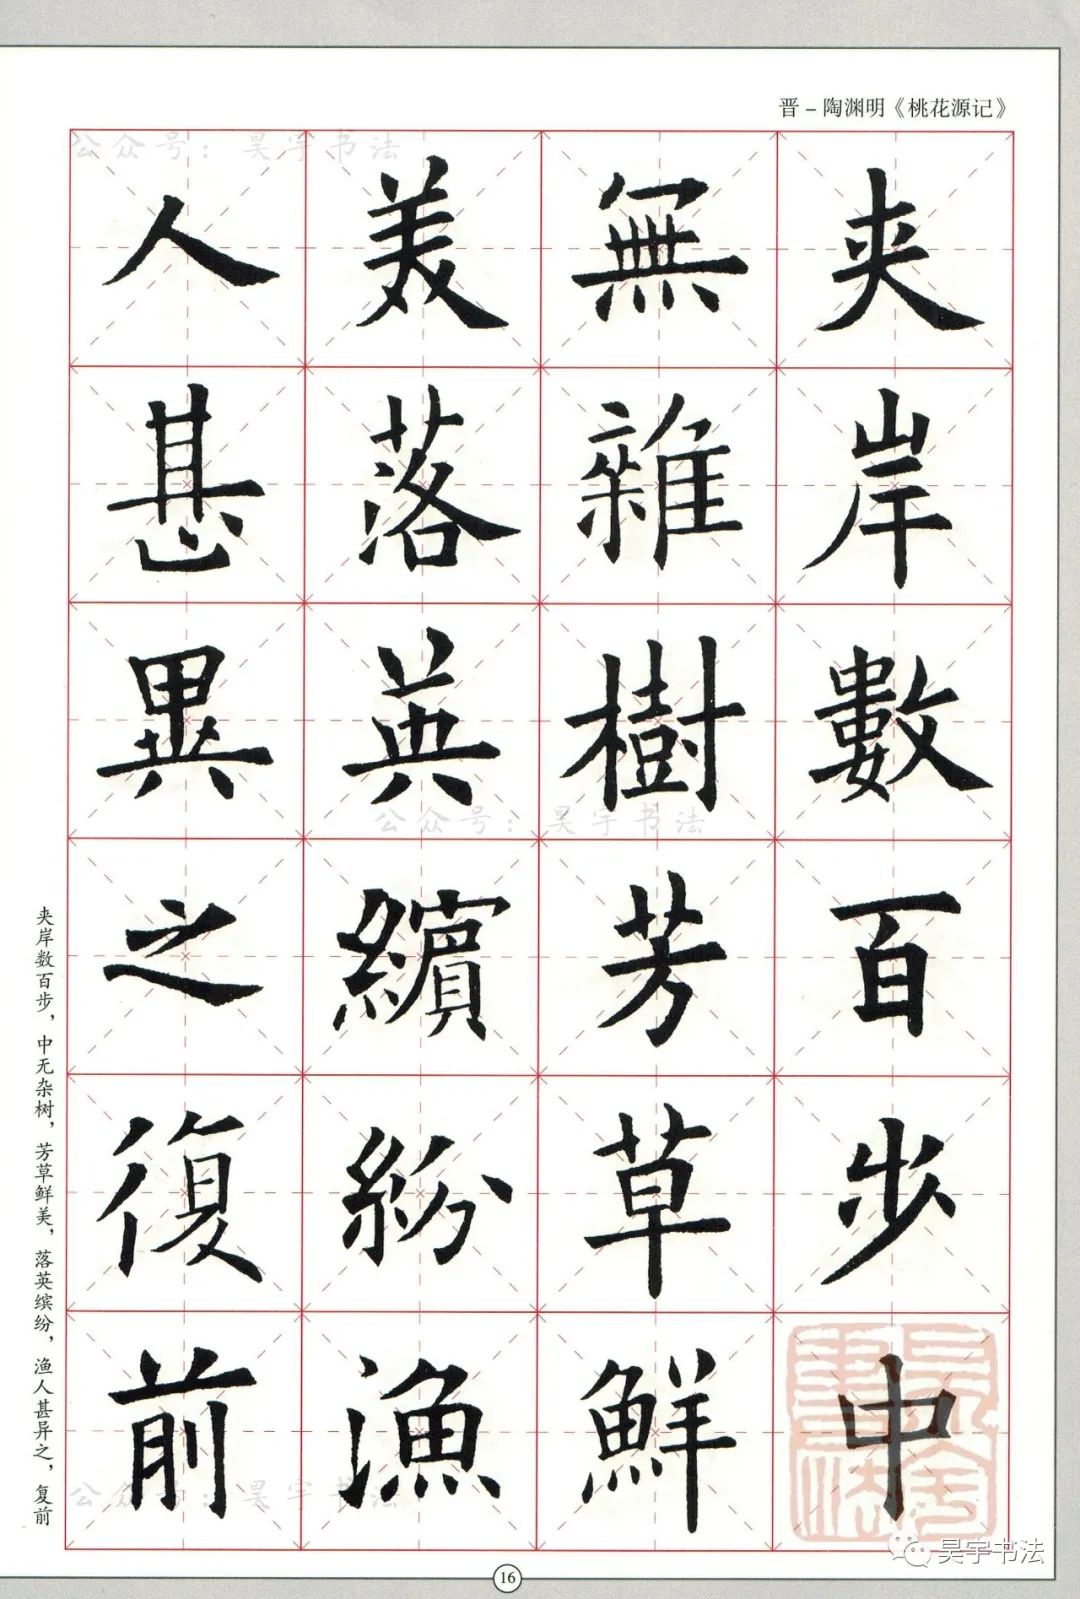 晋－陶渊明《桃花源记》
夹岸數百步中
無雜樹芳草鮮
美落英繽紛漁
人甚異之復前
夹岸数百步，中无杂树，芳草鲜美，落英缤纷，渔人甚异之，复前
公众号：昊宇书法
公众号：昊宇书法
公众号：昊宇书法
昊宇书法
昊宇书法
16